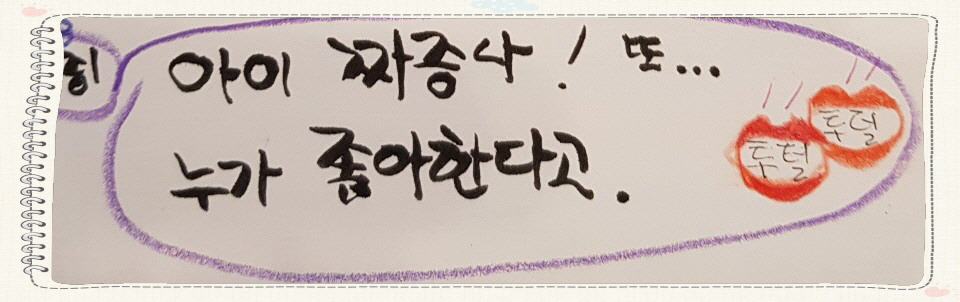 희
아이 짜증나! 또...
누가 좋아한다고.
투덜
투덜